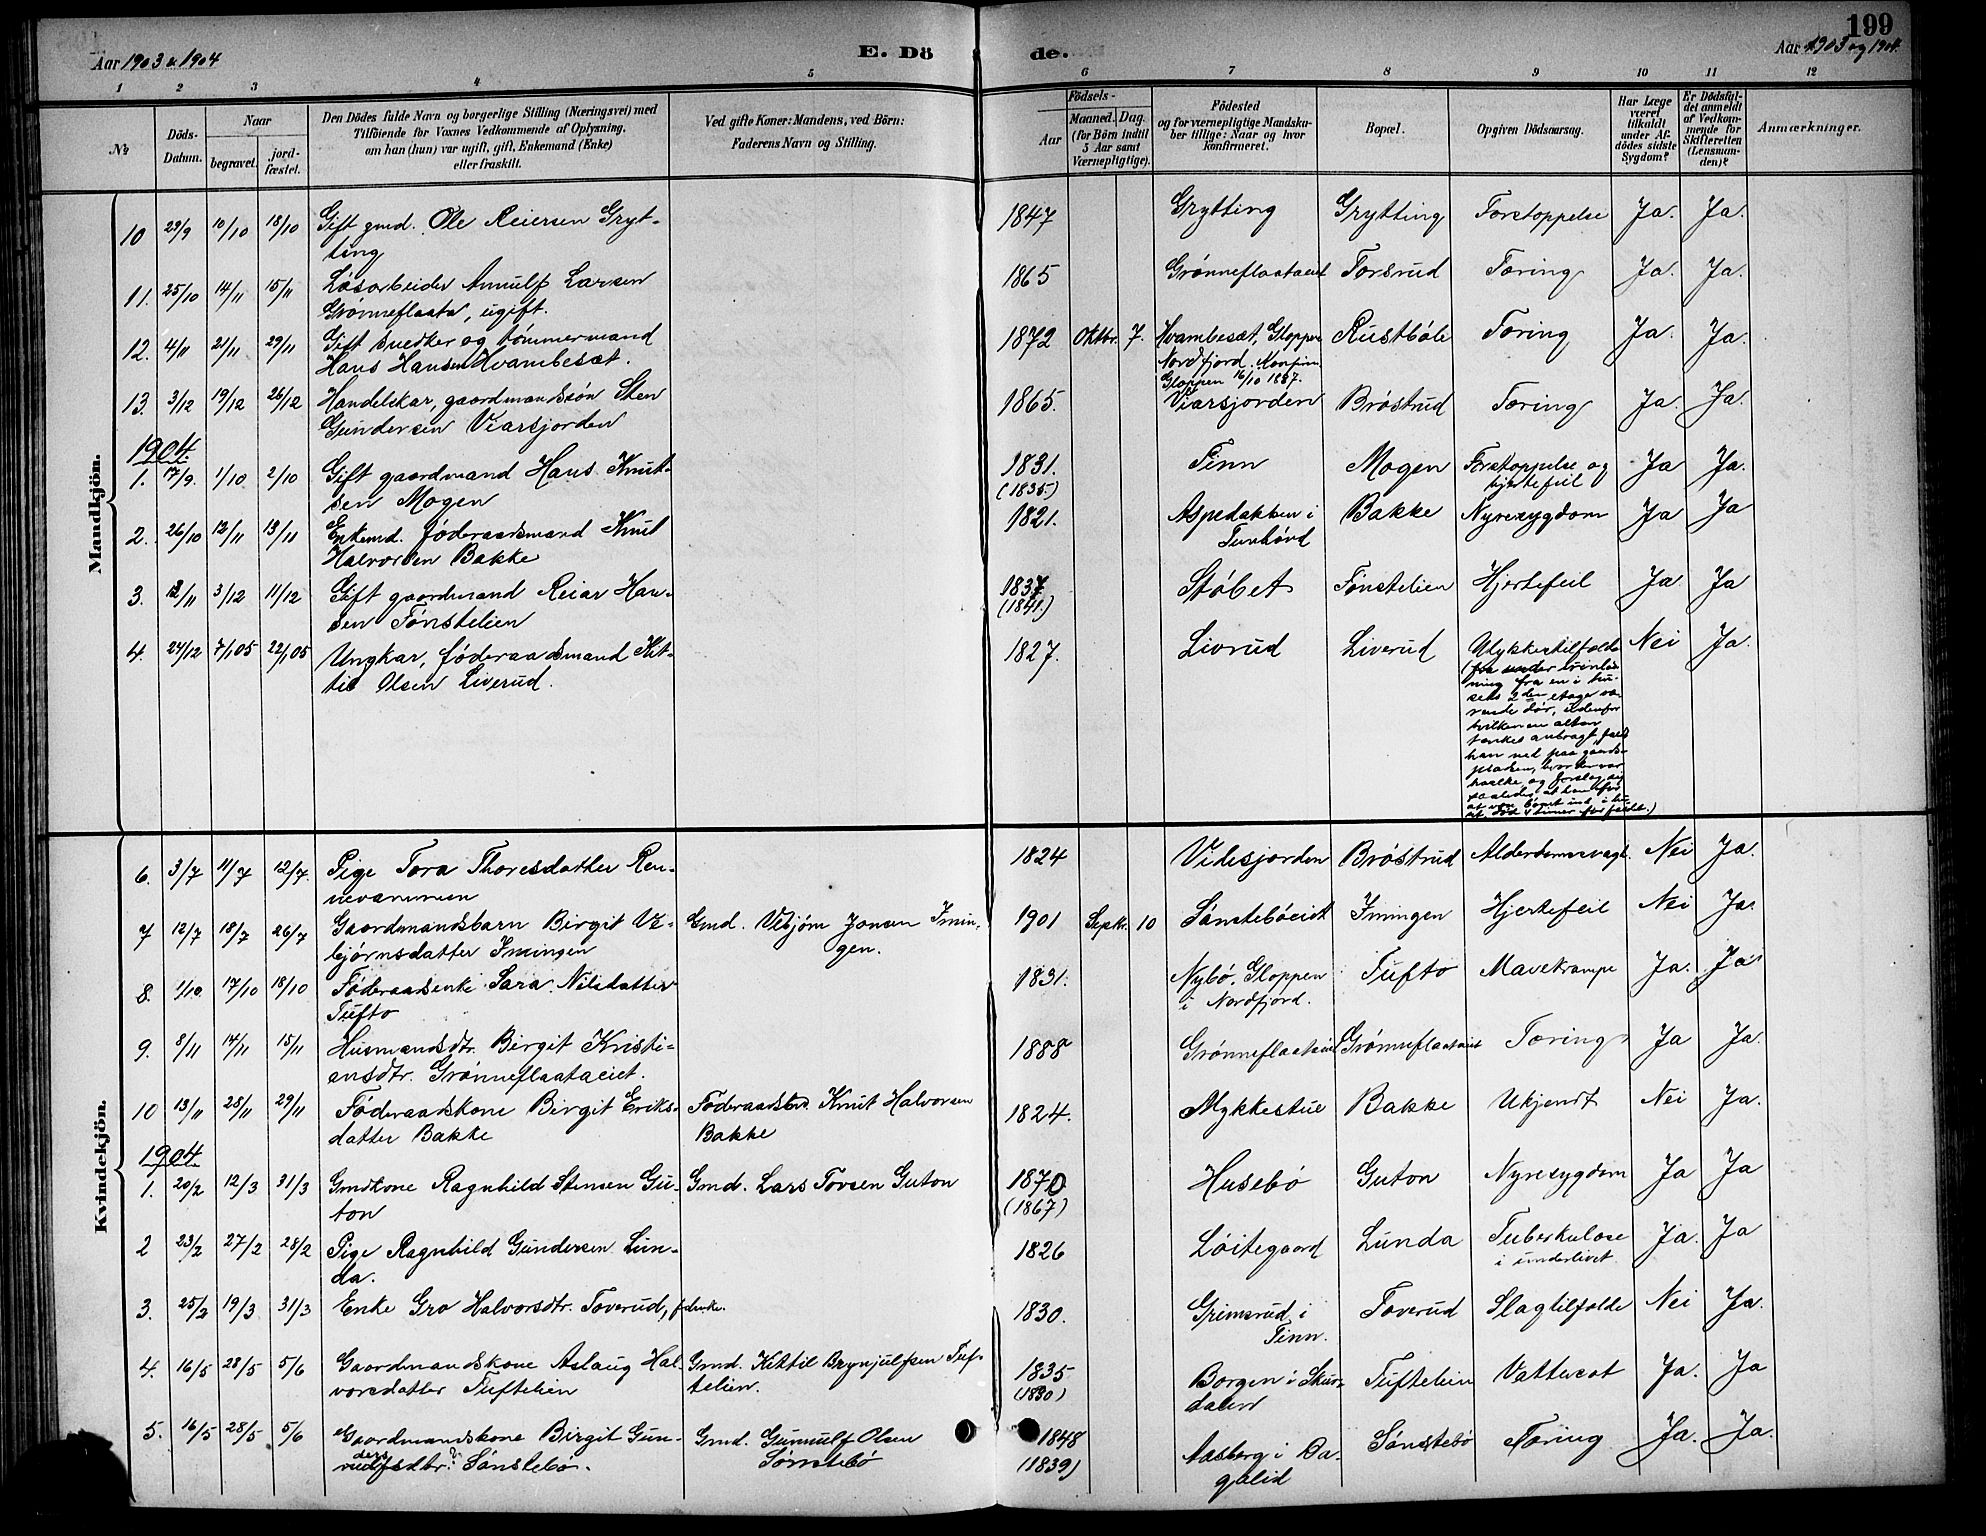 199
Aar 1903 & 1904
E. Dö de.
Aar 1903 og 1904.
1 2 3 4 5 6 7 8 9 10 11 12
No
Döds-Datum.
Naar
begravet.
jordfæstet.
Den Dödes fulde Navn og borgerlige Stilling (Næringsvei) med
Tilföiende for Voxnes Vedkommende af Oplysning,
om han (hun) var ugift, gift, Enkemand (Enke)
eller fraskilt.
Ved gifte Koner: Mandens, ved Börn:
Faderens Navn og Stilling.
Födsels-
Aar
Maaned. Dag.
(for Börn indtil
5 Aar samt
Værnepligtige).
Födested
og for værnepligtige Mandskaber tillige: Naar og hvor
konfirmeret.
Bopæl.
Opgiven Dödsaarsag.
Har Læge
været
tilkaldt
under Afdödes sidste
Sygdom?
Er Dödsfaldet anmeldt
af Vedkommende for
Skifteretten
(Lensmanden)?
Anmærkninger.
Mandkjön.
10 29/9 10/10 18/10 Gift gmd. Ole Reiersen Gryt-
ting
1847 Grytting Grytting Forstoppelse Ja. Ja.
11. 25/10 14/11 15/11 Løsarbeider Annulf Larsen
Grønneflaata, ugift.
1865 Grønneflaataeiet Forsrud Tæring Ja. Ja.
12. 4/11 21/11 29/11 Gift snedker og tømmermand
Hans Hansen Hvambesæt.
1872 Oktbr. 7. Hvambesæt, Gloppen
Nordfjord. Konfirm.
Gloppen 16/10 1887.
Rustbøle Tæring Ja. Ja.
13. 3/12 19/12 26/12 Handelskar, gaardmandssøn Sten
Gundersen Viarsjorden
1865. Viarsjorden Brøstrud Tæring Ja. Ja.
1904.
1. 17/9. 1/10 2/10 Gift gaardmand Hans Knut-
sen Mogen
1831.
(1835.)
Tinn Mogen Forstoppelse og
hjertefeil Ja Ja.
2. 26/10 12/11 13/11 Enkemd. føderaadsmand Knut
Halvorsen Bakke
1821. Aspedakken i
Tunhøvd
Bakke Nyresygdom Ja Ja
3. 12/11 3/12 11/12 Gift gaardmand Reiar Han-
sen Tønstelien
1837
(1841.)
Støbet Tønstelien Hjertefeil Ja Ja
4. 24/12 7/1 05 22/1 05 Ungkar, føderaadsmand Kit-
til Olsen Liverud.
1827. Livrud Liverud Ulykkestilfælde Nei Ja.
ning fra en i hu-
sets 2den etage væ-
rende dør, udenfor
hvilken en altan
tænkes anbragt, faldt
han ned paa gaards-
pladsen, hvor der var
haalke og forslog sig
saaledes, at han
Kvindekjön.
6. 3/7 11/7 12/7. Pige Tora Thoresdatter Ren-
nevammen
1824 Videsjorden Brøstrud Alderdomssvagh. Nei Ja.
7 12/7 18/7 26/7 Gaardmandsbarn Birgit Ve-
bjørnsdatter Imingen
Gmd. Vebjørn Jonsen Imin-
gen.
1901 Septbr. 10 Sønstebøeiet Imingen Hjertefeil Nei Ja.
8. 1/10 17/10 18/10 Føderaadsenke Sara Nilsdatter
Tufto
1831. Nybø, Gloppen
i Nordfjord.
Tufto Mavekrampe Ja. Ja
9. 8/11 14/11 15/11 Husmandsdtr. Birgit Kristi-
ansdtr. Grønneflaataeiet.
1888 Grønneflaataeiet Grønneflaataeiet Tæring Ja Ja.
10 13/11 28/11 29/11 Føderaadskone Birgit Eriks-
datter Bakke
Føderaadsmd. Knut Halvorsen
Bakke
1824. Mykkestue Bakke Ukjendt Nei Ja.
1904
1. 20/2 12/3 31/3 Gmdkone Ragnhild Stensen Gu-
ton
Gmd. Lars Tovsen Guton
1870
(1867)
Husebø Guton Nyresygdom Ja Ja
2 23/2 27/2 28/2 Pige Ragnhild Gundersen Lun-
da.
1826 Løitegaard Lunda Tuberkulose
i underlivet Ja. Ja
3. 25/2 19/3 31/3 Enke Gro Halvorsdtr. Toverud, fdenke.
1830. Grimsrud i
Tinn.
Toverud Slagtilfælde Nei Ja.
4. 16/5 28/5 5/6 Gaardmandskone Aslaug Hal-
vorsdatter Tuftelien
Gmd. Kittil Brynjulfsen Tuf-
telien.
1835
(1830)
Borgen i Skur-
dalen
Tuftelien Vattersot Ja. Ja
5. 16/5 28/5 5/6 Gaardmandskone Birgit Gun-
dtr. Sønstebø.
Gmd. Gunnulf Olsen
Sønstebø
1848
(1839)
Aasberg i Da-
galid
Sønstebø Tæring Ja. Ja.